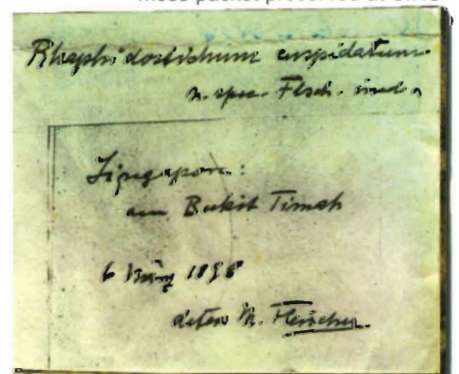 Rhaphidostichum cuspidatum
n. spec. Flsch. ined.
Singapore:
am Bukit Timah
6 März 1898
M. Fleischer